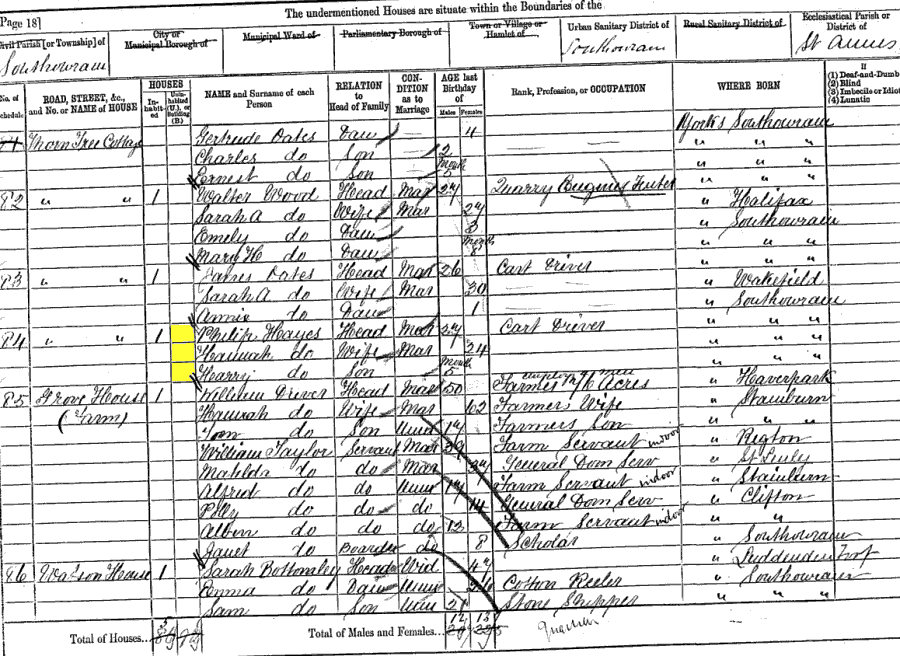 Page 18]
The undermentioned Houses are situate within the Boundaries of the
Civil Parish [or Township] of
City or Municipal Borough of
Municipal Ward of
Parliamentary Borough of
Town or Village or Hamlet of
Urban Sanitary District of
Rural Sanitary District of
Ecclesiastical Parish or District of
Southowram
Southowram
St Annes
No. of Schedule
ROAD, STREET, &c., and No. or NAME of HOUSE
HOUSES
Inhabited
Uninhabited (U.), or Building (B)
NAME and Surname of each Person
RELATION to Head of Family
CONDITION as to Marriage
AGE last Birthday of
Males
Females
Rank, Profession, or OCCUPATION
WHERE BORN
If
(1) Deaf-and-Dumb
(2) Blind
(3) Imbecile or Idiot
(4) Lunatic
Thorn Tree Cottage Gertrude Oates Daur 4 Yorks Southowram
Charles do Son 2 " "
Ernest do Son 5 Months " "
82 " " 1 Walter Wood Head Mar 27 Quarry Engine " Halifax
Sarah A do Wife Mar 27 " Southowram
Emily do Daur 3 " "
Mary H do Daur 8 Months " "
83 " " 1 James Oates Head Mar 26 Cart Driver " "
Sarah A do Wife Mar 30 " Wakefield
Annie do Daur 1 " Southowram
84 " " 1 Philip Hayes Head Mar 27 Cart Driver " "
Hannah do Wife Mar 24 " "
Harry do Son 5 Months " "
85 Grove House 1 William Driver Head Mar 50 Farmer Acres men " Haverpark
(Farm) Hannah do Wife Mar 62 Farmers Wife " Stainburn
Tom do Son Unm 17 Farmers Son " "
William Taylor Servant Mar 39 Farm Servant indoor " Rigton
Matilda do do Mar General Dom Serv
Alfred do do Unm 17 Farm Servant indoor " Stainburn
Polly do do do 14 General Dom Serv " Clifton
Albon do do do 12 Farm Servant indoor " "
Janet do Boarder do 8 Scholar " Southowram
86 Watson House 1 Sarah Bottomley Head Wid 47 " Luddenden Foot
Emma do Daur Unm Cotton Reeler " Southowram
Sam do Son Unm 21 Stone " "
Total of Houses...
Total of Males and Females...
12 13